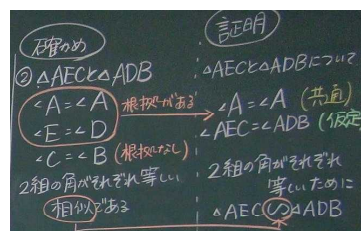 確かめ
② △AECと△ADB
∠A=∠A 根拠がある
∠E=∠D
∠C=∠B (根拠なし)
2組の角がそれぞれ等しい
相似である
証明
△AECと△ADBについて
∠A=∠A (共通)
∠AEC=∠ADB (仮定)
2組の角がそれぞれ
等しいために
△AEC∽△ADB